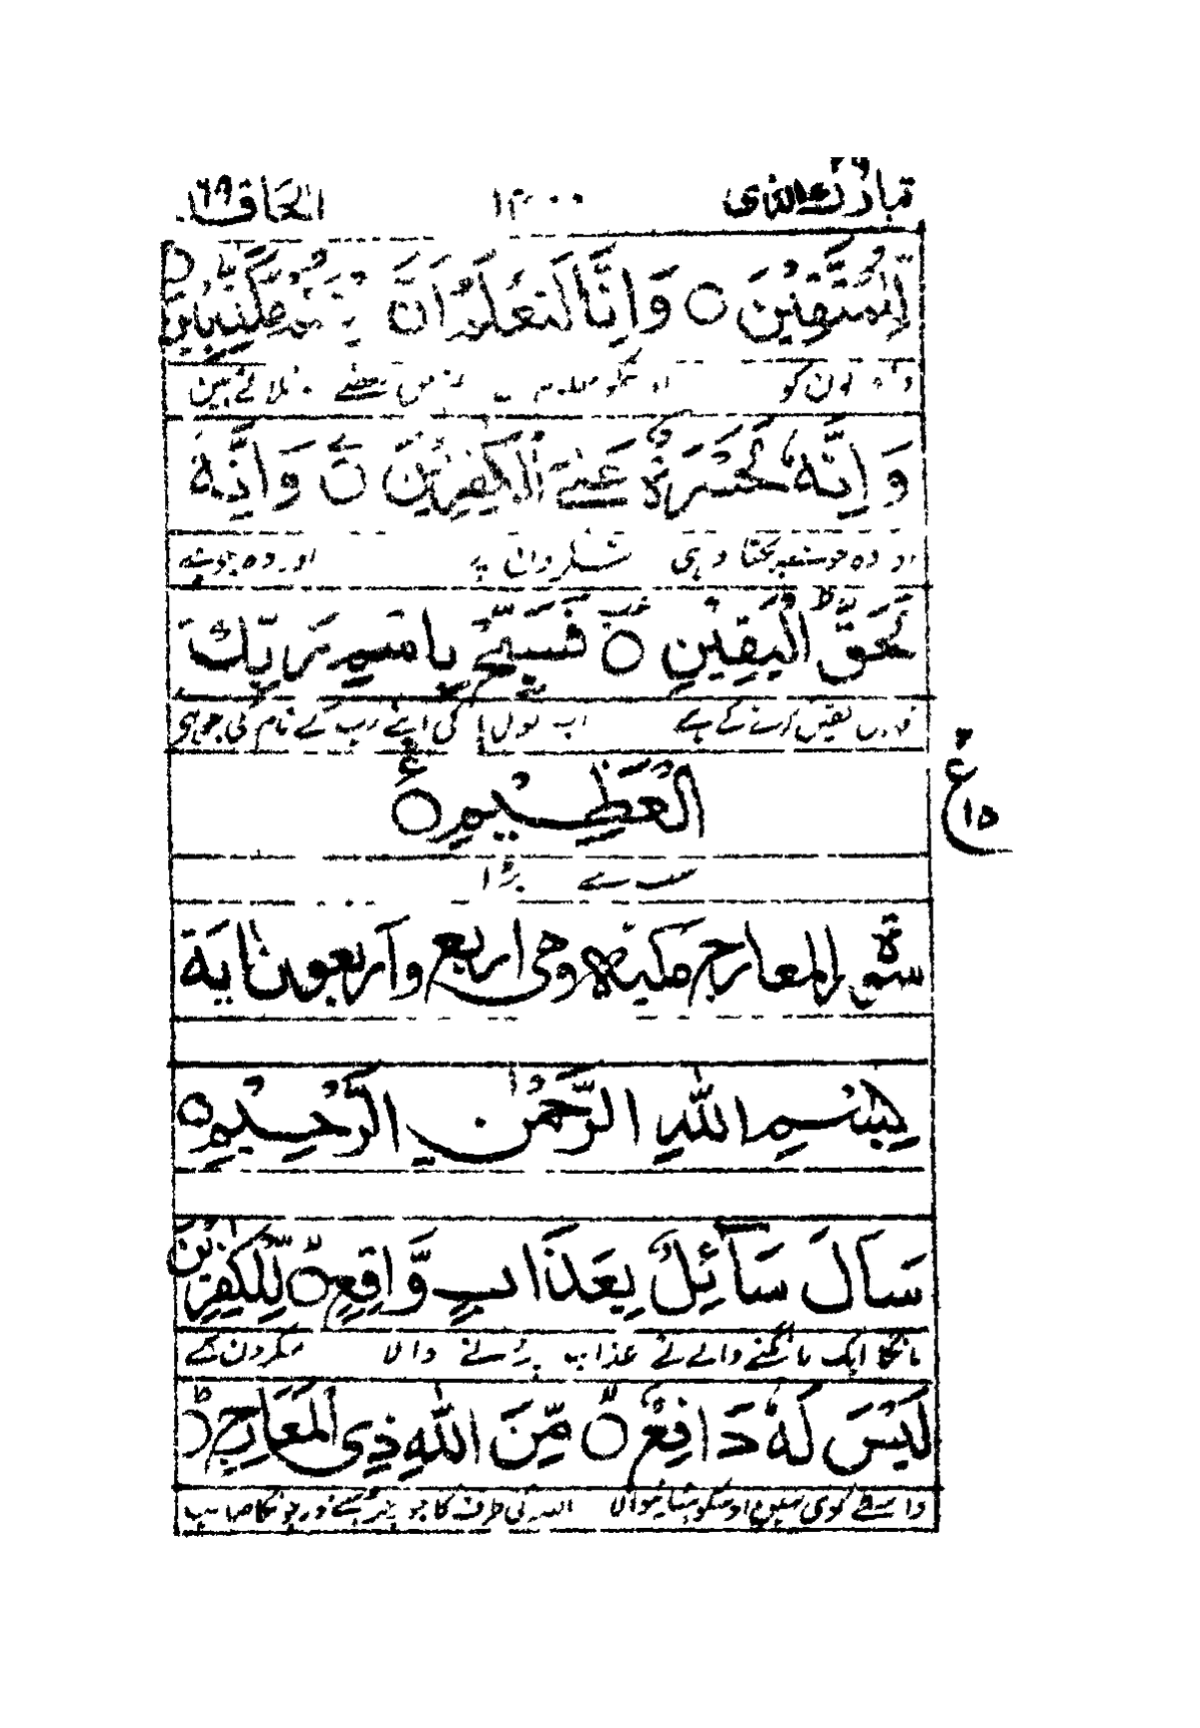 تبارك الذی ۲۹ ۱۳۰۰ الحاقة ۶۹
لِّلْمُتَّقِيْنَ ○ وَاِنَّا لَنَعْلَمُ اَنَّ مِنْكُمْ مُّكَذِّبِيْنَ ○
ون کو معلوم بعضے جھٹلاتے ہین
وَاِنَّهٗ لَحَسْرَةٌ عَلَى الْكٰفِرِيْنَ ○ وَاِنَّهٗ
وہ جو ہے پچھتاوا ہی منکرون پر اور وہ جو ہے
لَحَقُّ الْيَقِيْنِ ○ فَسَبِّحْ بِاسْمِ رَبِّكَ
یقین کرنے کے ہے اب بول پاکی اپنے رب کے نام کی جو ہی
ع ۲ ۱۵
الْعَظِيْمِ ○ ع
سب سے بڑا
سورة المعارج مکیة وهی اربع واربعون اٰیة
بِسْمِ اللّٰهِ الرَّحْمٰنِ الرَّحِيْمِ ○
سَاَلَ سَآئِلٌۢ بِعَذَابٍ وَّاقِعٍ ○ لِّلْكٰفِرِيْنَ
مانگا ایک مانگنے والے نے عذاب پڑنے والا منکرون کے
لَيْسَ لَهٗ دَافِعٌ ○ مِّنَ اللّٰهِ ذِى الْمَعَارِجِ ○
واسطے کوی نہین اوسکو ہٹانیوالا اللہ کی طرف کا جو چڑہتے درجونکا صاحب